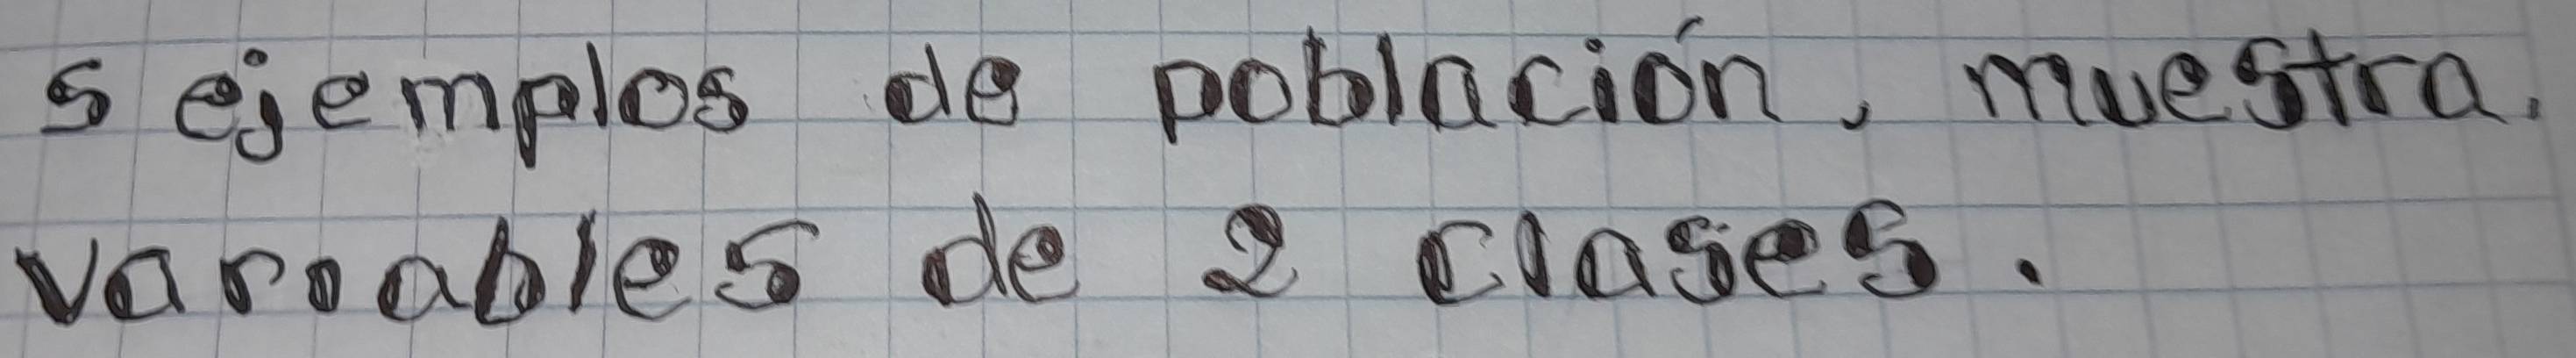 5 ejemplos de población, muestra,
variables de 2 clases.